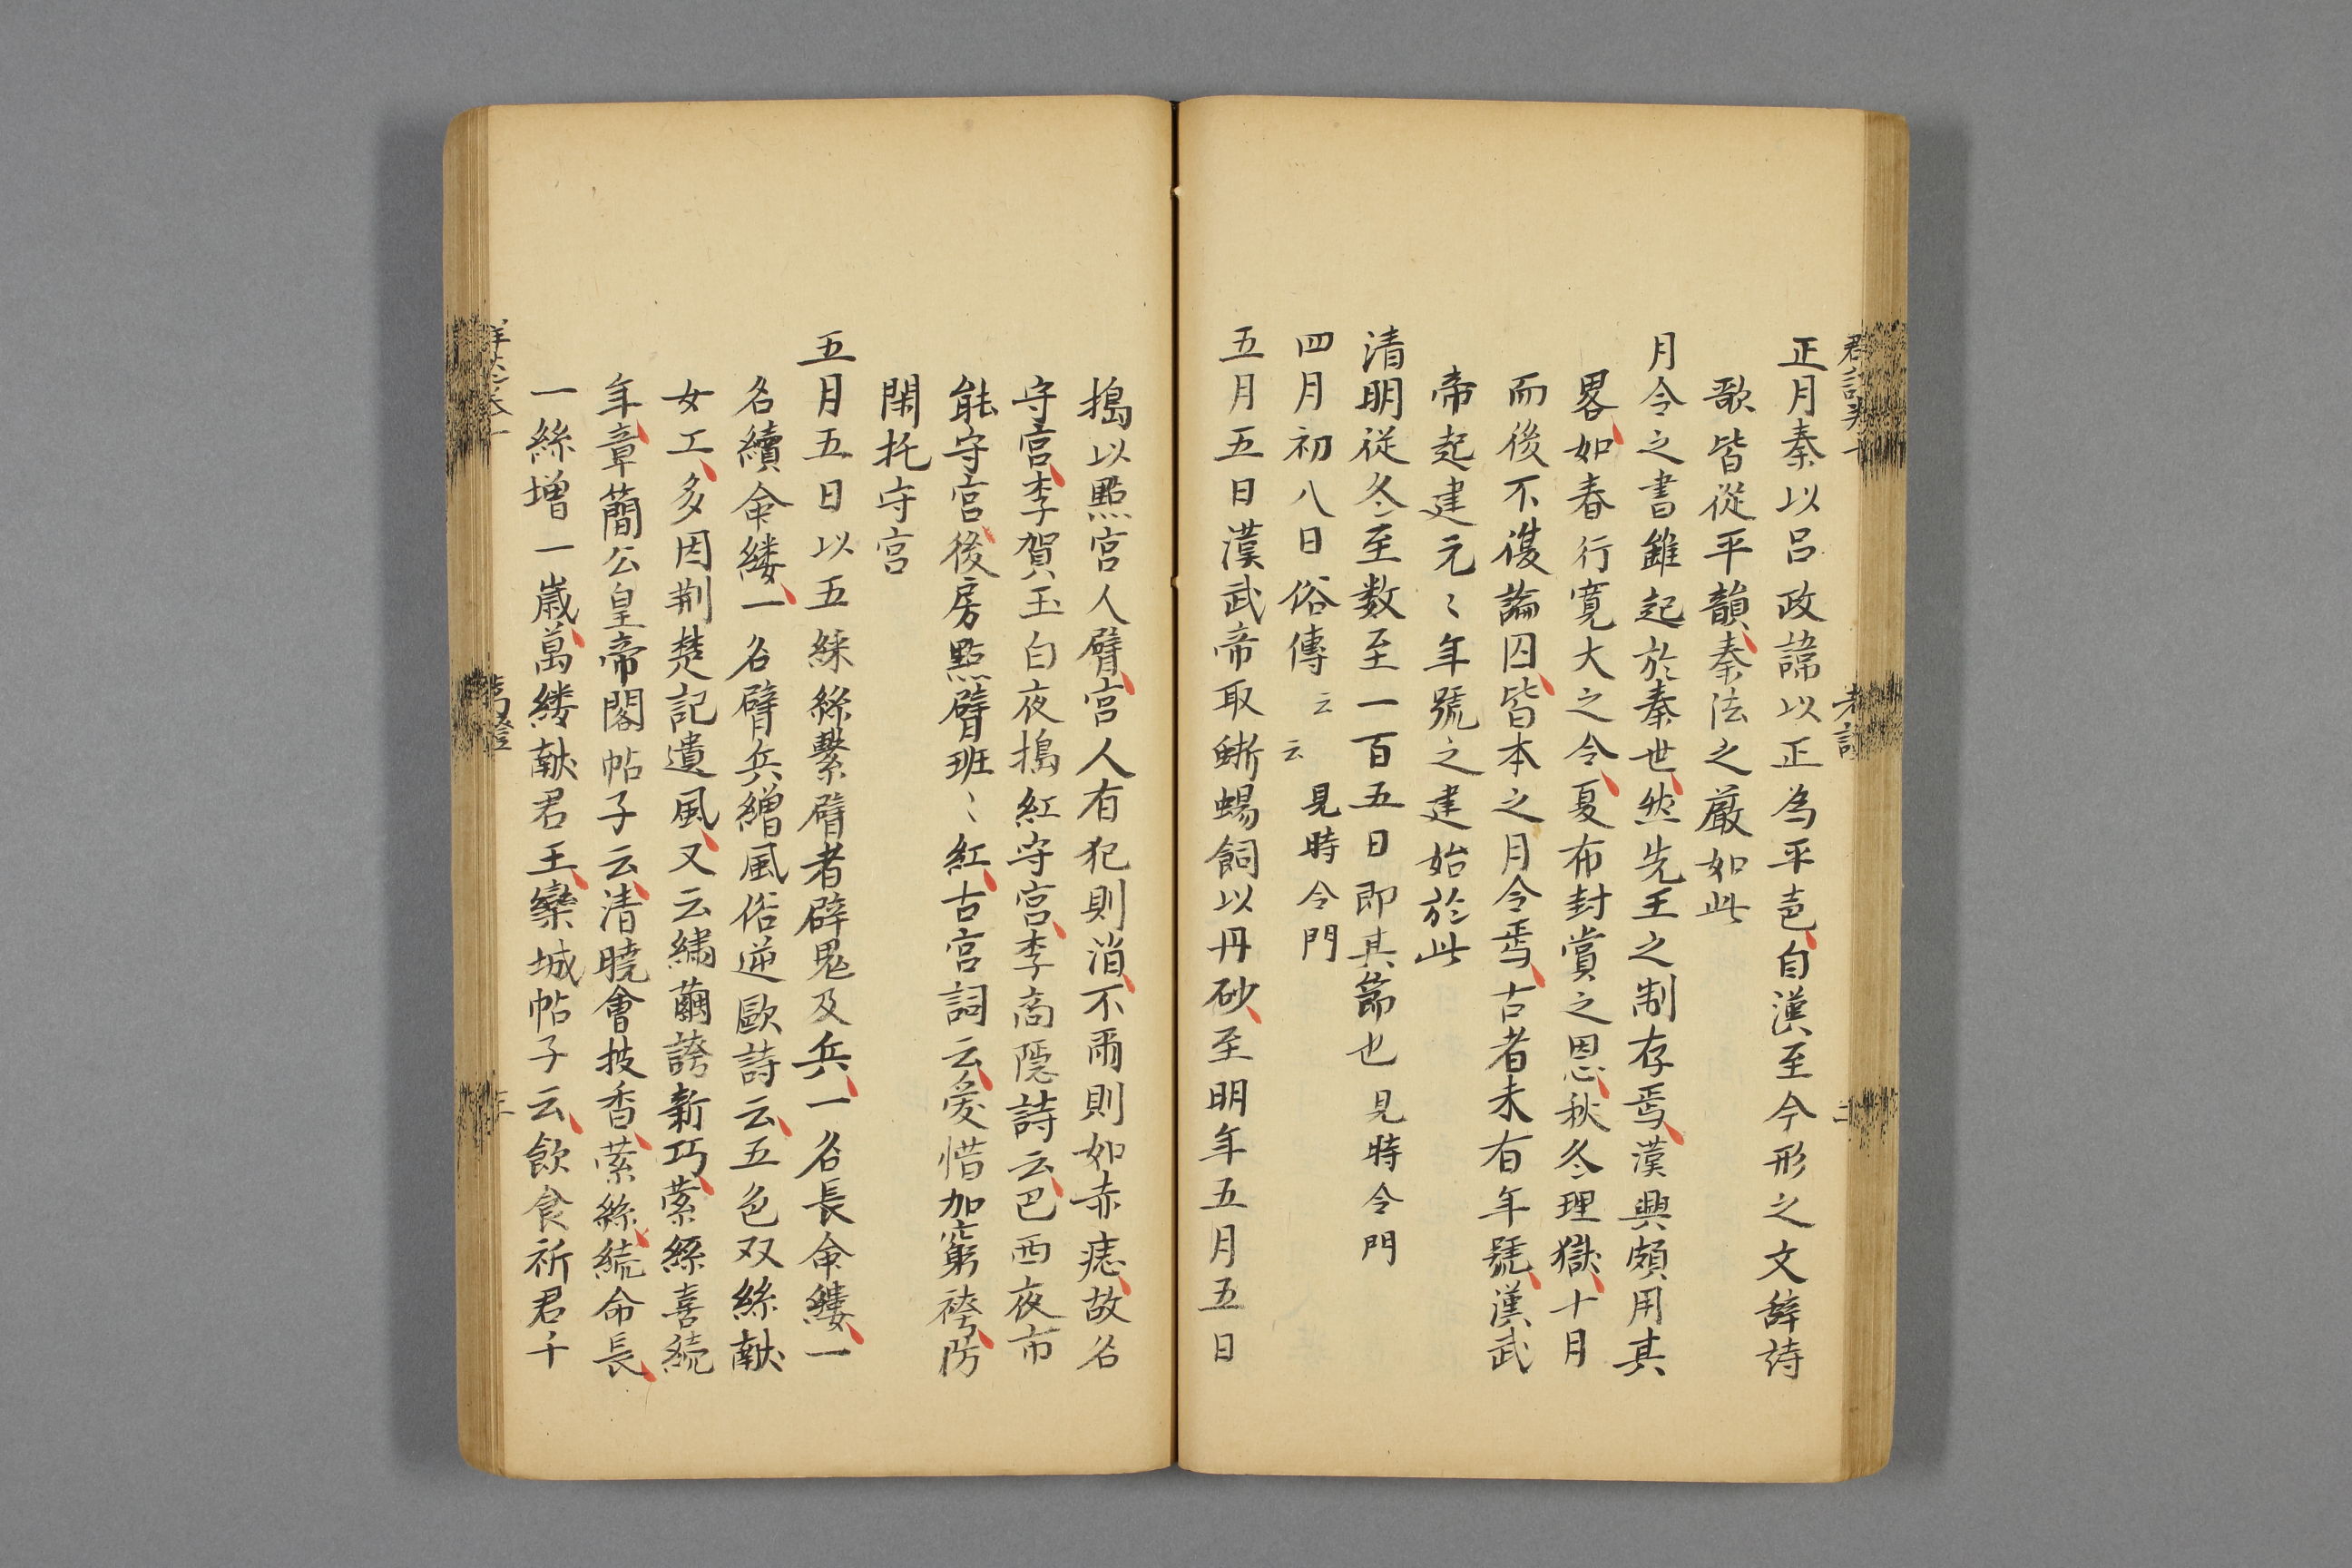 正月秦以呂政諱以正為平声自漢至今形之文辞詩
歌皆從平韻秦法之厳如此
月令之書雖起於秦世然先王之制存焉漢興頗用其
畧如春行寛大之令夏布封賞之恩秋冬理獄十月
而後不復論囚皆本之月令焉古者未有年號漢武
帝起建元〻年號之建始於此
清明従冬至数至一百五日即其節也 見時令門
四月初八日俗傳云云 見時令門
五月五日漢武帝取蜥蜴飼以丹砂至明年五月五日
搗以點宮人臂宮人有犯則消不爾則如赤痣故名
守宮李賀玉臼夜搗紅守宮李商隠詩云巴西夜市
紅守宮後房點臂班〻紅古宮詞云愛惜加窮袴防
閑托守宮
五月五日以五綵絲繫臂者辟鬼及兵一名長命縷一
名續命縷一名臂兵繒風俗逆歐詩云五色双絲献
女工多因荆楚記遺風又云繡繭誇新巧萦絲喜続
年章簡公皇帝閣帖子云清暁會披香萦絲続命長
一絲増一歳萬縷献君王欒城帖子云飲食祈君千